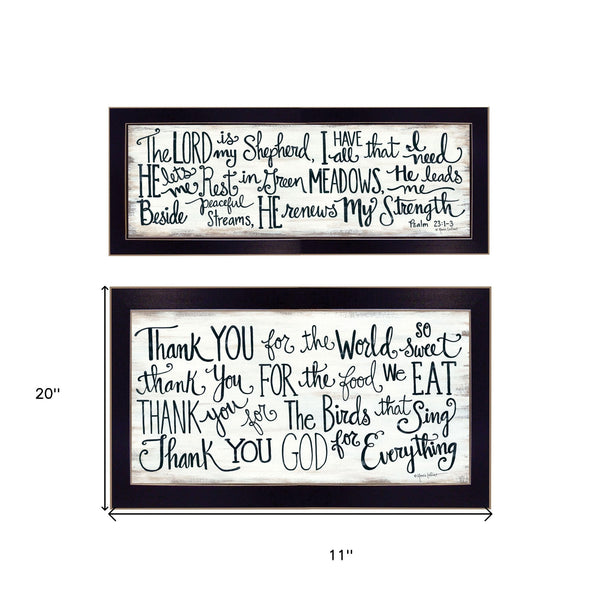 The LORD is my Shepherd, I HAVE all that I need
HE let's me Rest in Green MEADOWS, He leads me
Beside peaceful Streams, HE renews My Strength
Psalm 23:1-3
Thank YOU for the World so sweet
thank You FOR the food We EAT
THANK you for The Birds that Sing
Thank YOU GOD for Everything
20"
11"